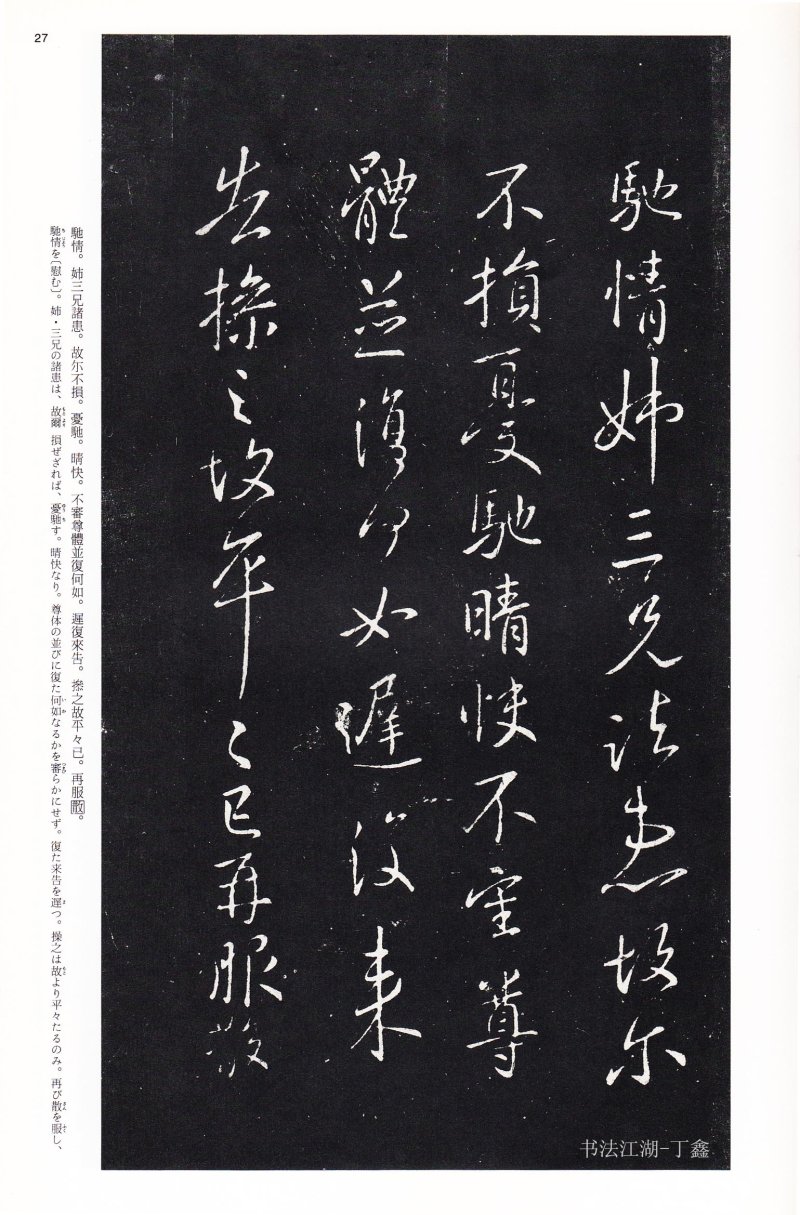 27
馳情姉三兄諸患故尓
不損憂馳晴快不審尊
體並復何如遅復来
告操之故平々已再服散
馳情。姉三兄諸患。故尓不損。憂馳。晴快。不審尊體並復何如。遲復來告。操之故平々已。再服散。
馳情を〔慰む〕。姉・三兄の諸患は、故爾損ぜざれば、憂馳す。晴快なり。尊体の並びに復た何如なるかを審らかにせず。復た来告を遅つ。操之は故より平々たるのみ。再び散を服し、
书法江湖-丁鑫